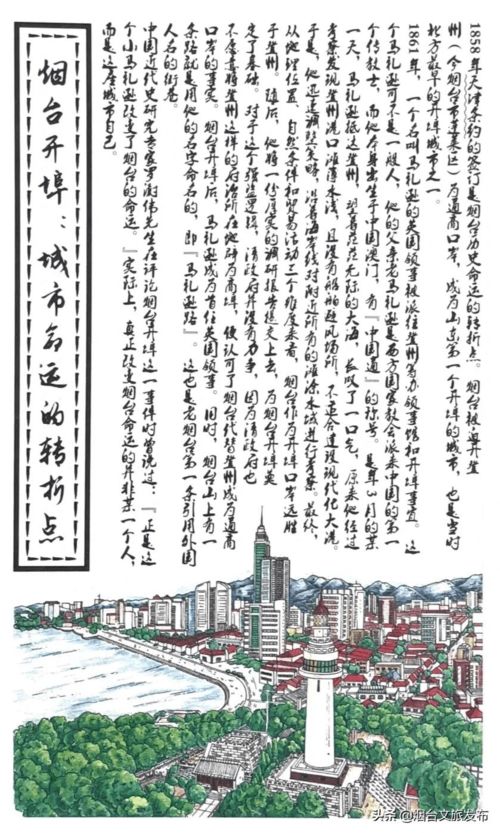 1858年天津条约的签订是烟台历史命运的转折点。烟台被迫开登
州(今烟台市蓬莱区)为通商口岸,成为山东第一个开埠的城市,也是当时
北方最早的开埠城市之一。
1861年,一个名叫马礼逊的英国领事被派往登州筹办领事馆和开埠事宜。这
个马礼逊可不是一般人,他的父亲老马礼逊是西方国家教会派来中国的第一
个传教士,而他本身出生于中国澳门,有『中国通』的称号。是年3月的某
一天,马礼逊抵达登州,望着茫茫无际的大海,长叹了一口气,原来他经过
考察发现登州港口滩薄水浅,且没有船舶避风场所,不适合建设现代化大港。
于是,他迅速调整策略,沿着海岸线对附近所有的滩涂水域进行考察。最终,
从地理位置、自然条件和贸易活动三个维度来看,烟台作为开埠口岸远胜
于登州。随后,他将一份厚实的调研报告递交上去,为烟台开埠奠
定了基础。对于这个强盗逻辑,清政府并没有力争,因为清政府也
不愿意将登州这样的府治所在地辟为商埠,便认可了烟台代替登州成为通商
口岸的事实。烟台开埠后,马礼逊成为首任英国领事。旧时,烟台山上有一
条路就是用他的名字命名的,即『马礼逊路』。这也是老烟台第一条引用外国
人名的街巷。
中国近代史研究专家罗澍伟先生在评论烟台开埠这一事件时曾说过:『正是这
个小马礼逊改变了烟台的命运。』实际上,真正改变烟台命运的并非某一个人,
而是这座城市自己。
烟台开埠:城市命运的转折点
头条 @烟台文旅发布